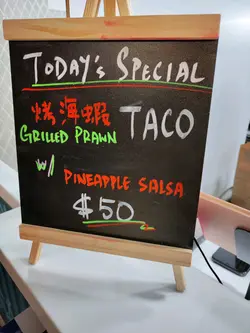 TODAY's SPECIAL
烤海蝦 TACO
GRILLED PRAWN
W/
PINEAPPLE SALSA
$50